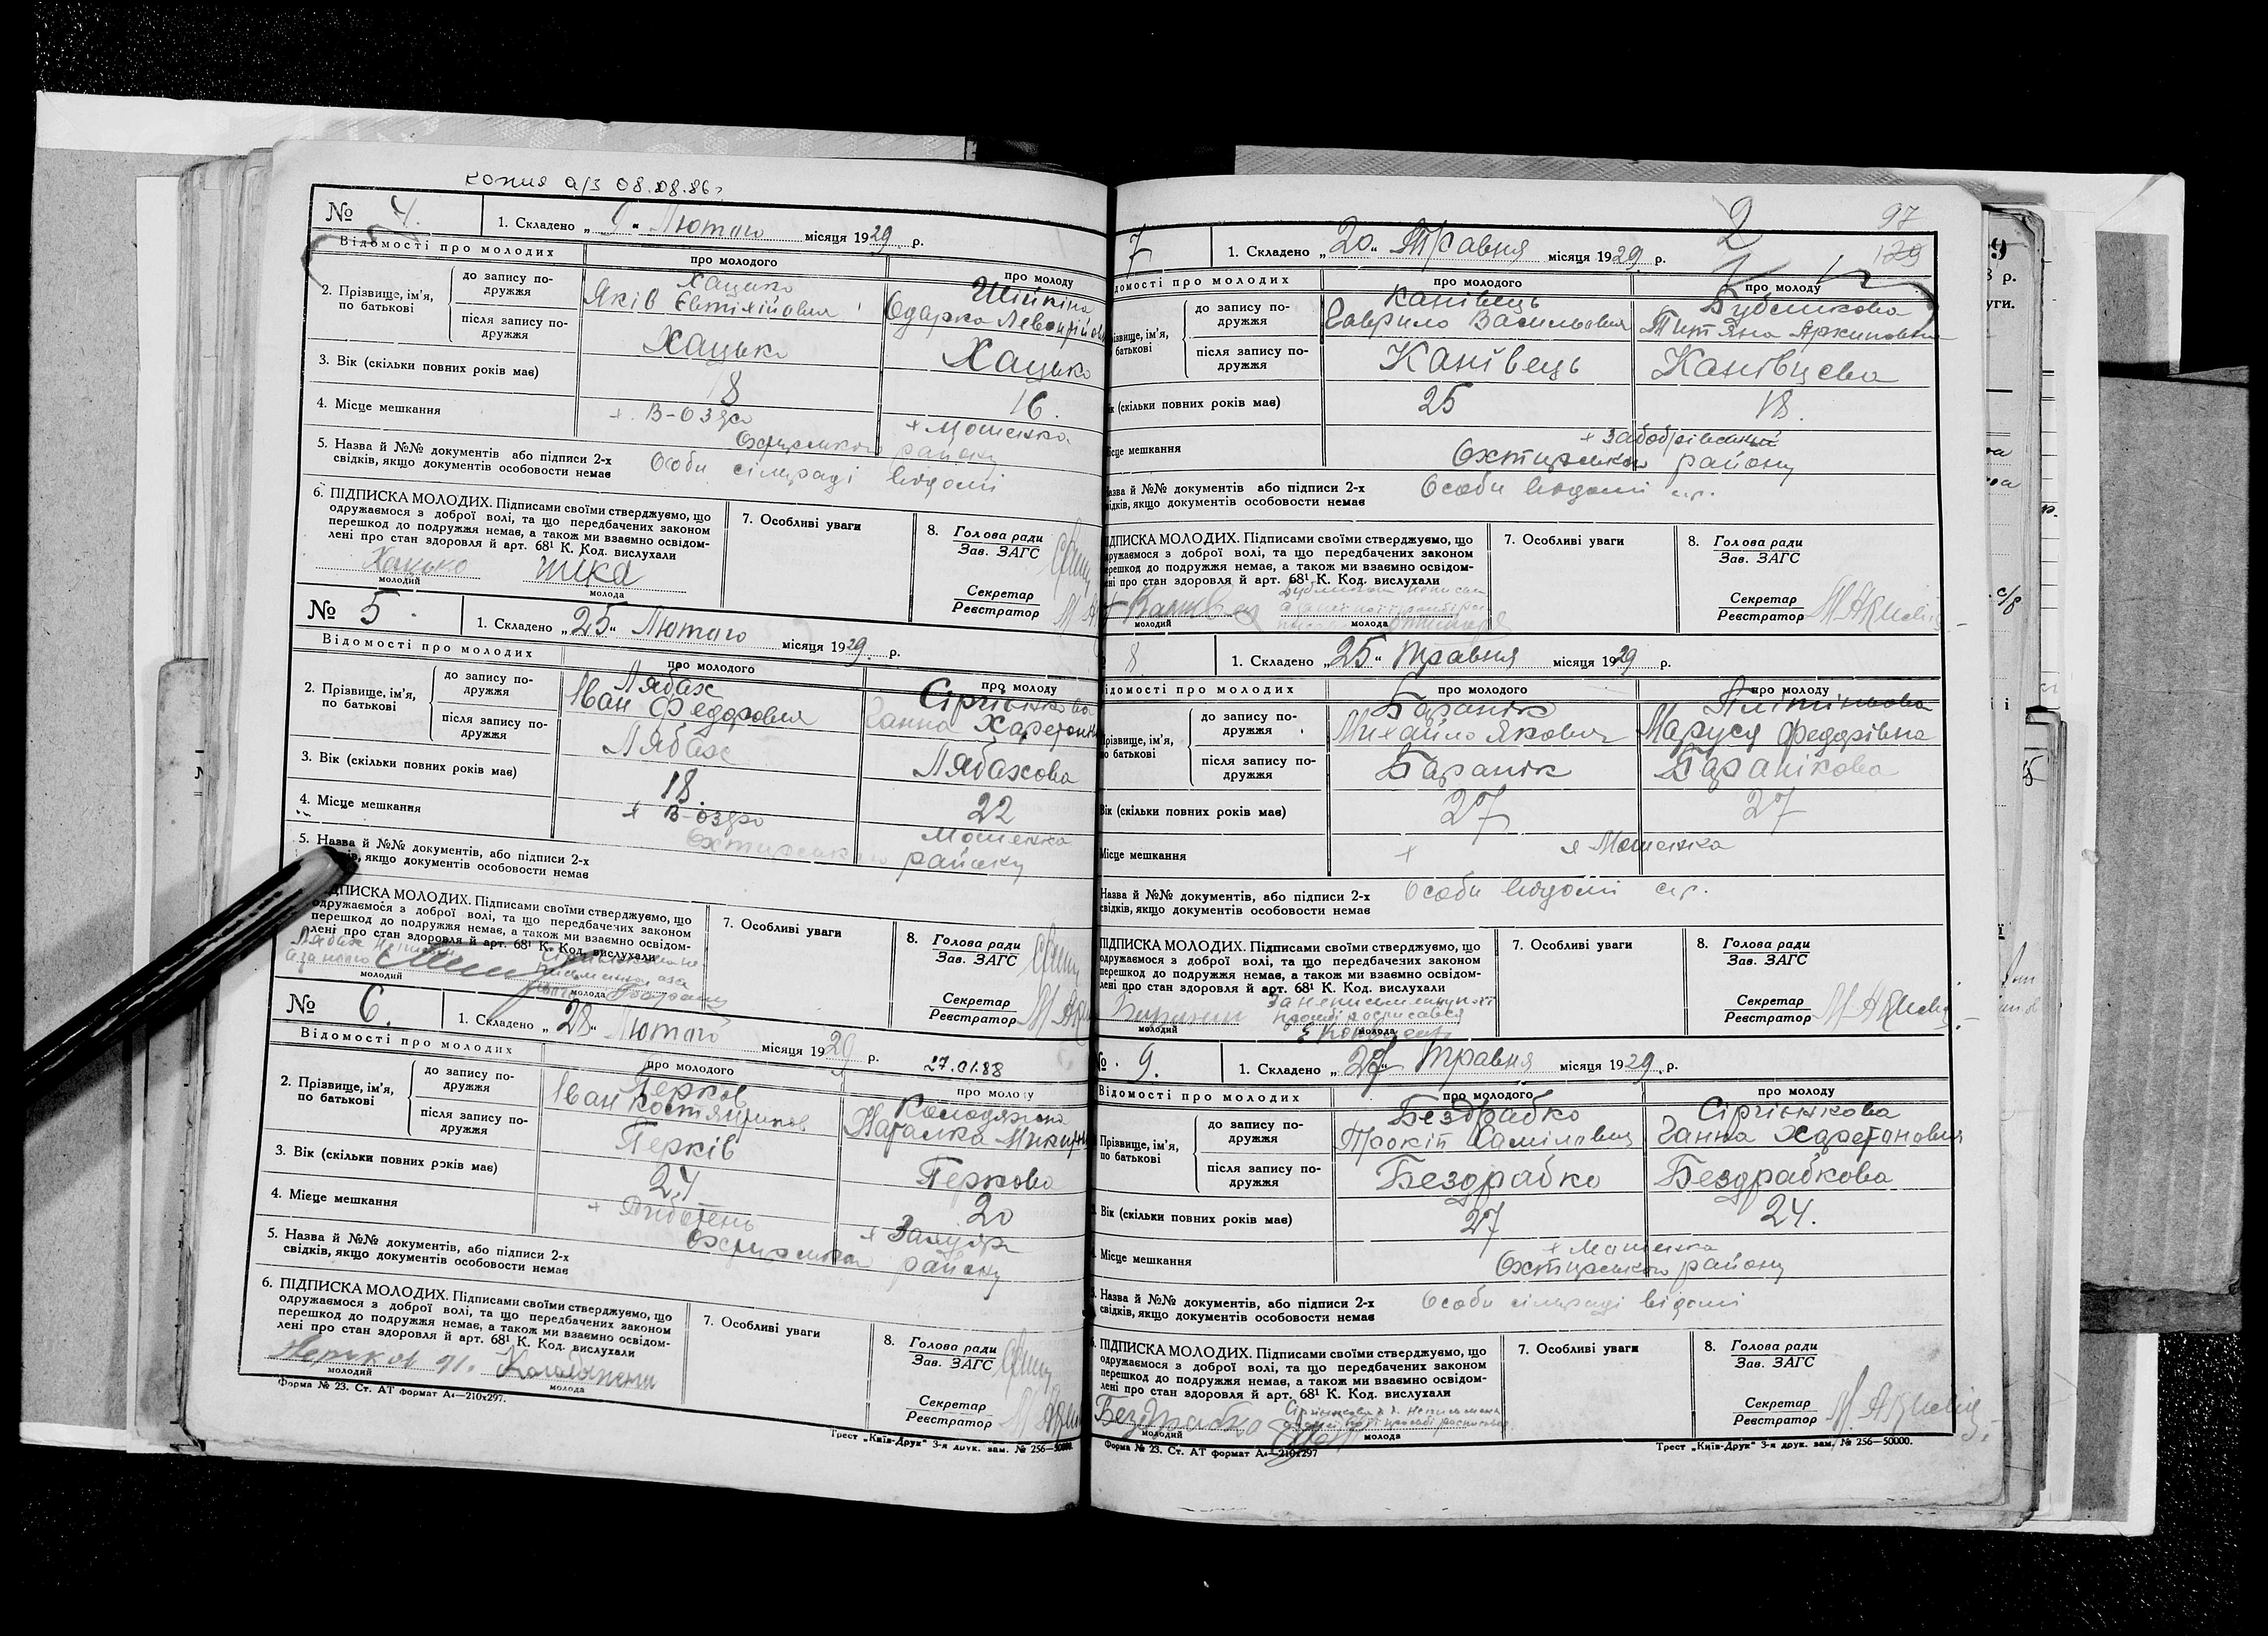 копия а/з 08.08.86г
№ 4. 1. Складено „9“ Лютого місяця 1929 р.
Відомості про молодих
про молодого
про молоду
2. Прізвище, ім’я, по батькові
до запису по-
дружжя
Хацько
Яків Євтихійович
Шійкіна
Одарка
після запису по-
дружжя
Хацько
Хацько
3. Вік (скільки повних років має)
18
16.
4. Місце мешкання
х. В-Озеро
х Мошенка
Охтирського району
5. Назва й №№ документів або підписи 2-х
свідків, якщо документів особовости немає
Особи сільраді відомі
6. ПІДПИСКА МОЛОДИХ. Підписами своїми стверджуємо, що
одружаємося з доброї волі, та що передбачених законом
перешкод до подружжя немає, а також ми взаємно освідом-
лені про стан здоровля й арт. 68¹ К. Код. вислухали
Хацько
молодий
молода
7. Особливі уваги
8. Голова ради
Зав. ЗАГС
Секретар
Реєстратор
№ 5. 1. Складено „25“ Лютого місяця 1929. р.
Відомості про молодих
про молодого
про молоду
2. Прізвище, ім’я,
по батькові
до запису по-
дружжя
Лябах
Іван Федорович
Сіргієнкова
Ганна
після запису по-
дружжя
Лябах
Лябахова
3. Вік (скільки повних років має)
18.
22
4. Місце мешкання
х В-озеро
Мошенка
Охтирського району
5. Назва й №№ документів, або підписи 2-х
якщо документів особовости немає
ПІДПИСКА МОЛОДИХ. Підписами своїми стверджуємо, що
одружаємося з доброї волі, та що передбачених законом
перешкод до подружжя немає, а також ми взаємно освідом-
лені про стан здоровля й арт. 68¹ К. Код. вислухали
молодий
молода
7. Особливі уваги
8. Голова ради
Зав. ЗАГС
Секретар
Реєстратор
№ 6. 1. Складено „28“ Лютого місяця 1929 р.
27.01.88
Відомості про молодих
про молодого
про молоду
2. Прізвище, ім’я,
по батькові
до запису по-
дружжя
Перков
Іван
Колодяжна
Наталка
після запису по-
дружжя
Перків
Перкова
3. Вік (скільки повних років має)
24
20
4. Місце мешкання
Охтирського району
5. Назва й №№ документів, або підписи 2-х
свідків, якщо документів особовости немає
6. ПІДПИСКА МОЛОДИХ. Підписами своїми стверджуємо, що
одружаємося з доброї волі, та що передбачених законом
перешкод до подружжя немає, а також ми взаємно освідом-
лені про стан здоровля й арт. 68¹ К. Код. вислухали
молодий
молода
7. Особливі уваги
8. Голова ради
Зав. ЗАГС
Секретар
Реєстратор
Форма № 23. Ст. АТ формат А₄—210х297.
Трест „Київ-Друк“ 3-я друк. зам. № 256—50000.
2
97
129
7 1. Складено „20“ Травня місяця 1929. р.
про молодих
про молодого
про молоду
до запису по-
дружжя
Канівець
Гаврило Васильович
Бубликова
після запису по-
дружжя
Канівець
Канівцева
(скільки повних років має)
25
18.
мешкання
Охтирського району
й №№ документів або підписи 2-х
якщо документів особовости немає
Особи відомі с.р.
ПІДПИСКА МОЛОДИХ. Підписами своїми стверджуємо, що
одружаємося з доброї волі, та що передбачених законом
перешкод до подружжя немає, а також ми взаємно освідом-
лені про стан здоровля й арт. 68¹ К. Код. вислухали
молодий
молода
7. Особливі уваги
8. Голова ради
Зав. ЗАГС
Секретар
Реєстратор
8 1. Складено „25“ Травня місяця 1929 р.
Відомості про молодих
про молодого
про молоду
Прізвище, ім’я,
по батькові
до запису по-
дружжя
Баранік
Михайло Якович
Маруся Федорівна
після запису по-
дружжя
Баранік
Баранікова
Вік (скільки повних років має)
27
27
Місце мешкання
х
х Мошенка
Назва й №№ документів, або підписи 2-х
свідків, якщо документів особовости немає
Особи відомі с.р.
ПІДПИСКА МОЛОДИХ. Підписами своїми стверджуємо, що
одружаємося з доброї волі, та що передбачених законом
перешкод до подружжя немає, а також ми взаємно освідом-
лені про стан здоровля й арт. 68¹ К. Код. вислухали
молодий
молода
7. Особливі уваги
8. Голова ради
Зав. ЗАГС
Секретар
Реєстратор
№ 9. 1. Складено „27“ Травня місяця 1929. р.
Відомості про молодих
про молодого
про молоду
Прізвище, ім’я,
по батькові
до запису по-
дружжя
Бездрабко
Прокіп
Сіргієнкова
Ганна Харетоновна
після запису по-
дружжя
Бездрабко
Бездрабкова
Вік (скільки повних років має)
27
24.
Місце мешкання
х Мошенка
Охтирського району
Назва й №№ документів, або підписи 2-х
свідків, якщо документів особовости немає
Особи сільраді відомі
ПІДПИСКА МОЛОДИХ. Підписами своїми стверджуємо, що
одружаємося з доброї волі, та що передбачених законом
перешкод до подружжя немає, а також ми взаємно освідом-
лені про стан здоровля й арт. 68¹ К. Код. вислухали
Бездрабко
молодий
молода
7. Особливі уваги
8. Голова ради
Зав. ЗАГС
Секретар
Реєстратор
Форма № 23. Ст. АТ формат А₄—210х297
Трест „Київ-Друк“ 3-я друк. зам. № 256—50000.